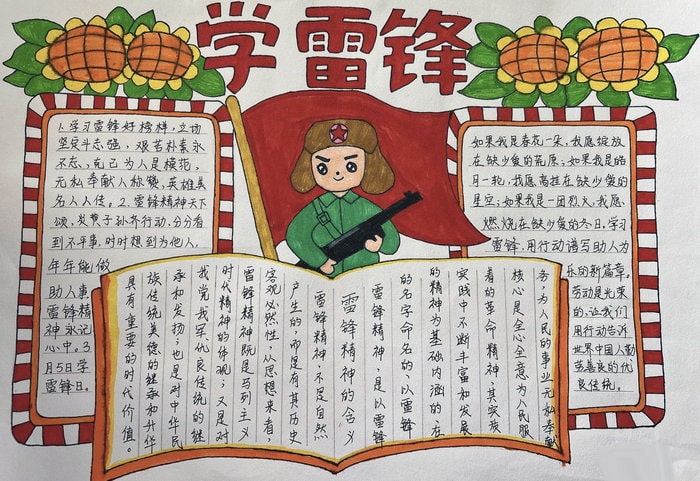 学雷锋
1.学习雷锋好榜样,立场
坚定斗志强,艰苦朴素永
不忘,克己为人是模范,
无私奉献人称赞,英雄美
名人人传。2.雷锋精神天下
颂,炎黄子孙齐行动,分分看
到不平事,时时想到为他人,
年年能做
助人事,
雷锋精
神永记
心中。3
月5日学
雷锋日。
如果我是春花一朵,我愿绽放
在缺少爱的荒原;如果我是皓
月一轮,我愿高挂在缺少爱的
星空;如果我是一团烈火,我愿
燃烧在缺少爱的冬日,学习
雷锋,用行动谱写助人为
乐的新篇章。
劳动是光荣
的,让我们
用行动告诉
世界中国人勤
善良的优
良传统。
雷锋精神的含义
雷锋精神,是以雷锋
的名字命名的、以雷锋
的精神为基础内涵的、在
实践中不断丰富和发展
着的革命精神,其实质
核心是全心全意为人民服
务为人民的事业无私奉献
雷锋精神,不是自然
产生的,而是有其历史
客观必然性,从思想来看,
雷锋精神既是马列主义
时代精神的体现;又是对
我党我军优良传统的继
承和发扬;也是对中华民
族传统美德的继承和升华
具有重要的时代价值。